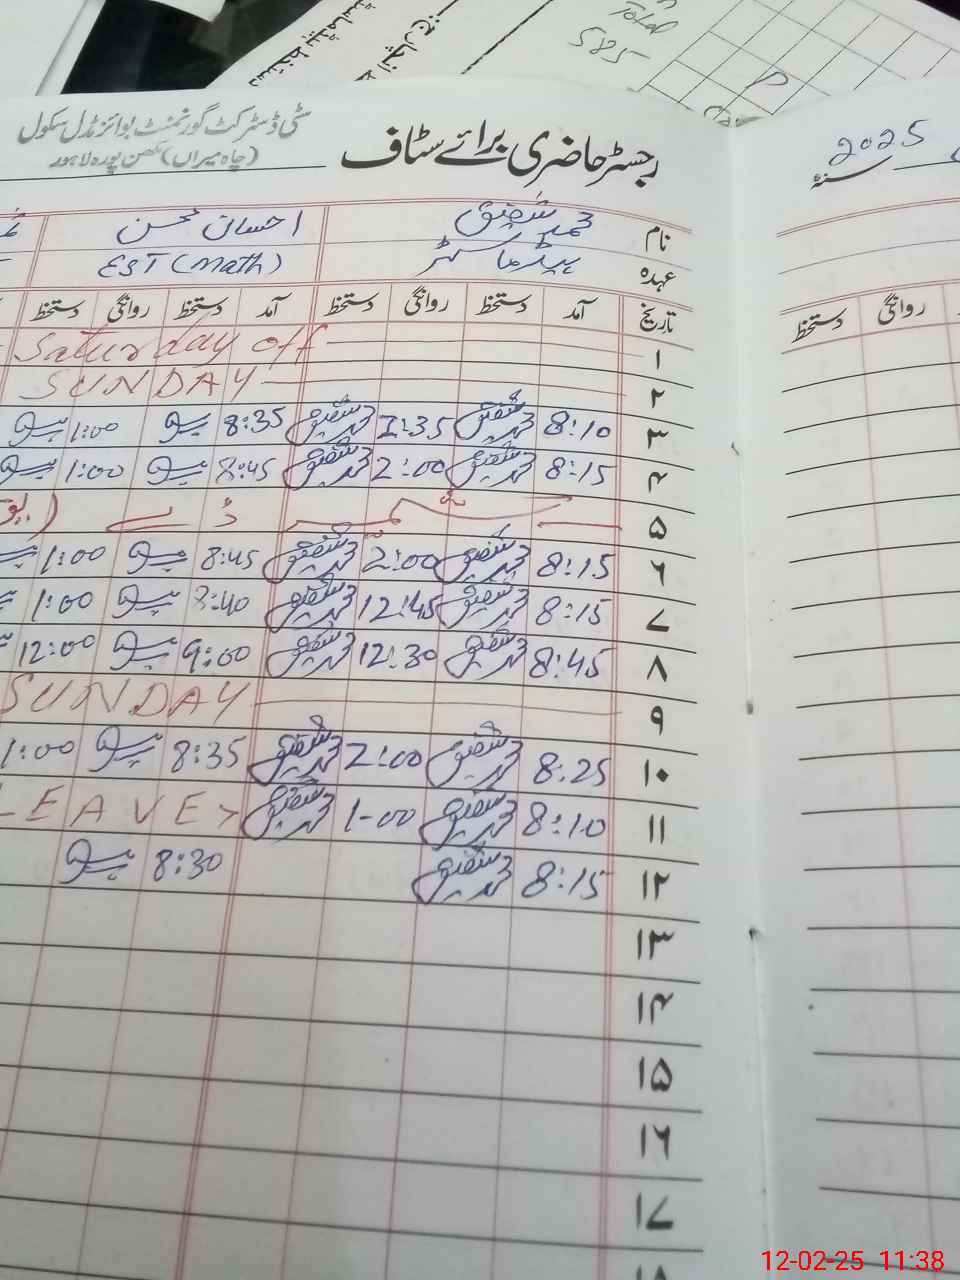 Total
585
سٹی ڈسٹرکٹ گورنمنٹ بوائز مڈل سکول
(چاہ میراں) مکھن پورہ لاہور
رجسٹر حاضری برائے سٹاف
2025 سنہ
نام محمد شفیق احسان محسن
عہدہ ہیڈ ماسٹر EST (Math)
تاریخ آمد دستخط روانگی دستخط آمد دستخط روانگی دستخط
روانگی دستخط
۱ Saturday off
۲ SUNDAY
۳ 8:10 محمد شفیق 1:35 محمد شفیق 8:35 1:00
۴ 8:15 محمد شفیق 2:00 محمد شفیق 8:45 1:00
۵ کشمیر ڈے
۶ 8:15 محمد شفیق 2:00 محمد شفیق 8:45 1:00
۷ 8:15 محمد شفیق 12:45 محمد شفیق 8:40 1:00
۸ 8:45 محمد شفیق 12:30 محمد شفیق 9:00 12:00
۹ SUNDAY
۱۰ 8:25 محمد شفیق 2:00 محمد شفیق 8:35 1:00
۱۱ 8:10 محمد شفیق 1-00 محمد شفیق LEAVE
۱۲ 8:15 محمد شفیق 8:30
۱۳
۱۴
۱۵
۱۶
۱۷
۱۸
12-02-25 11:38